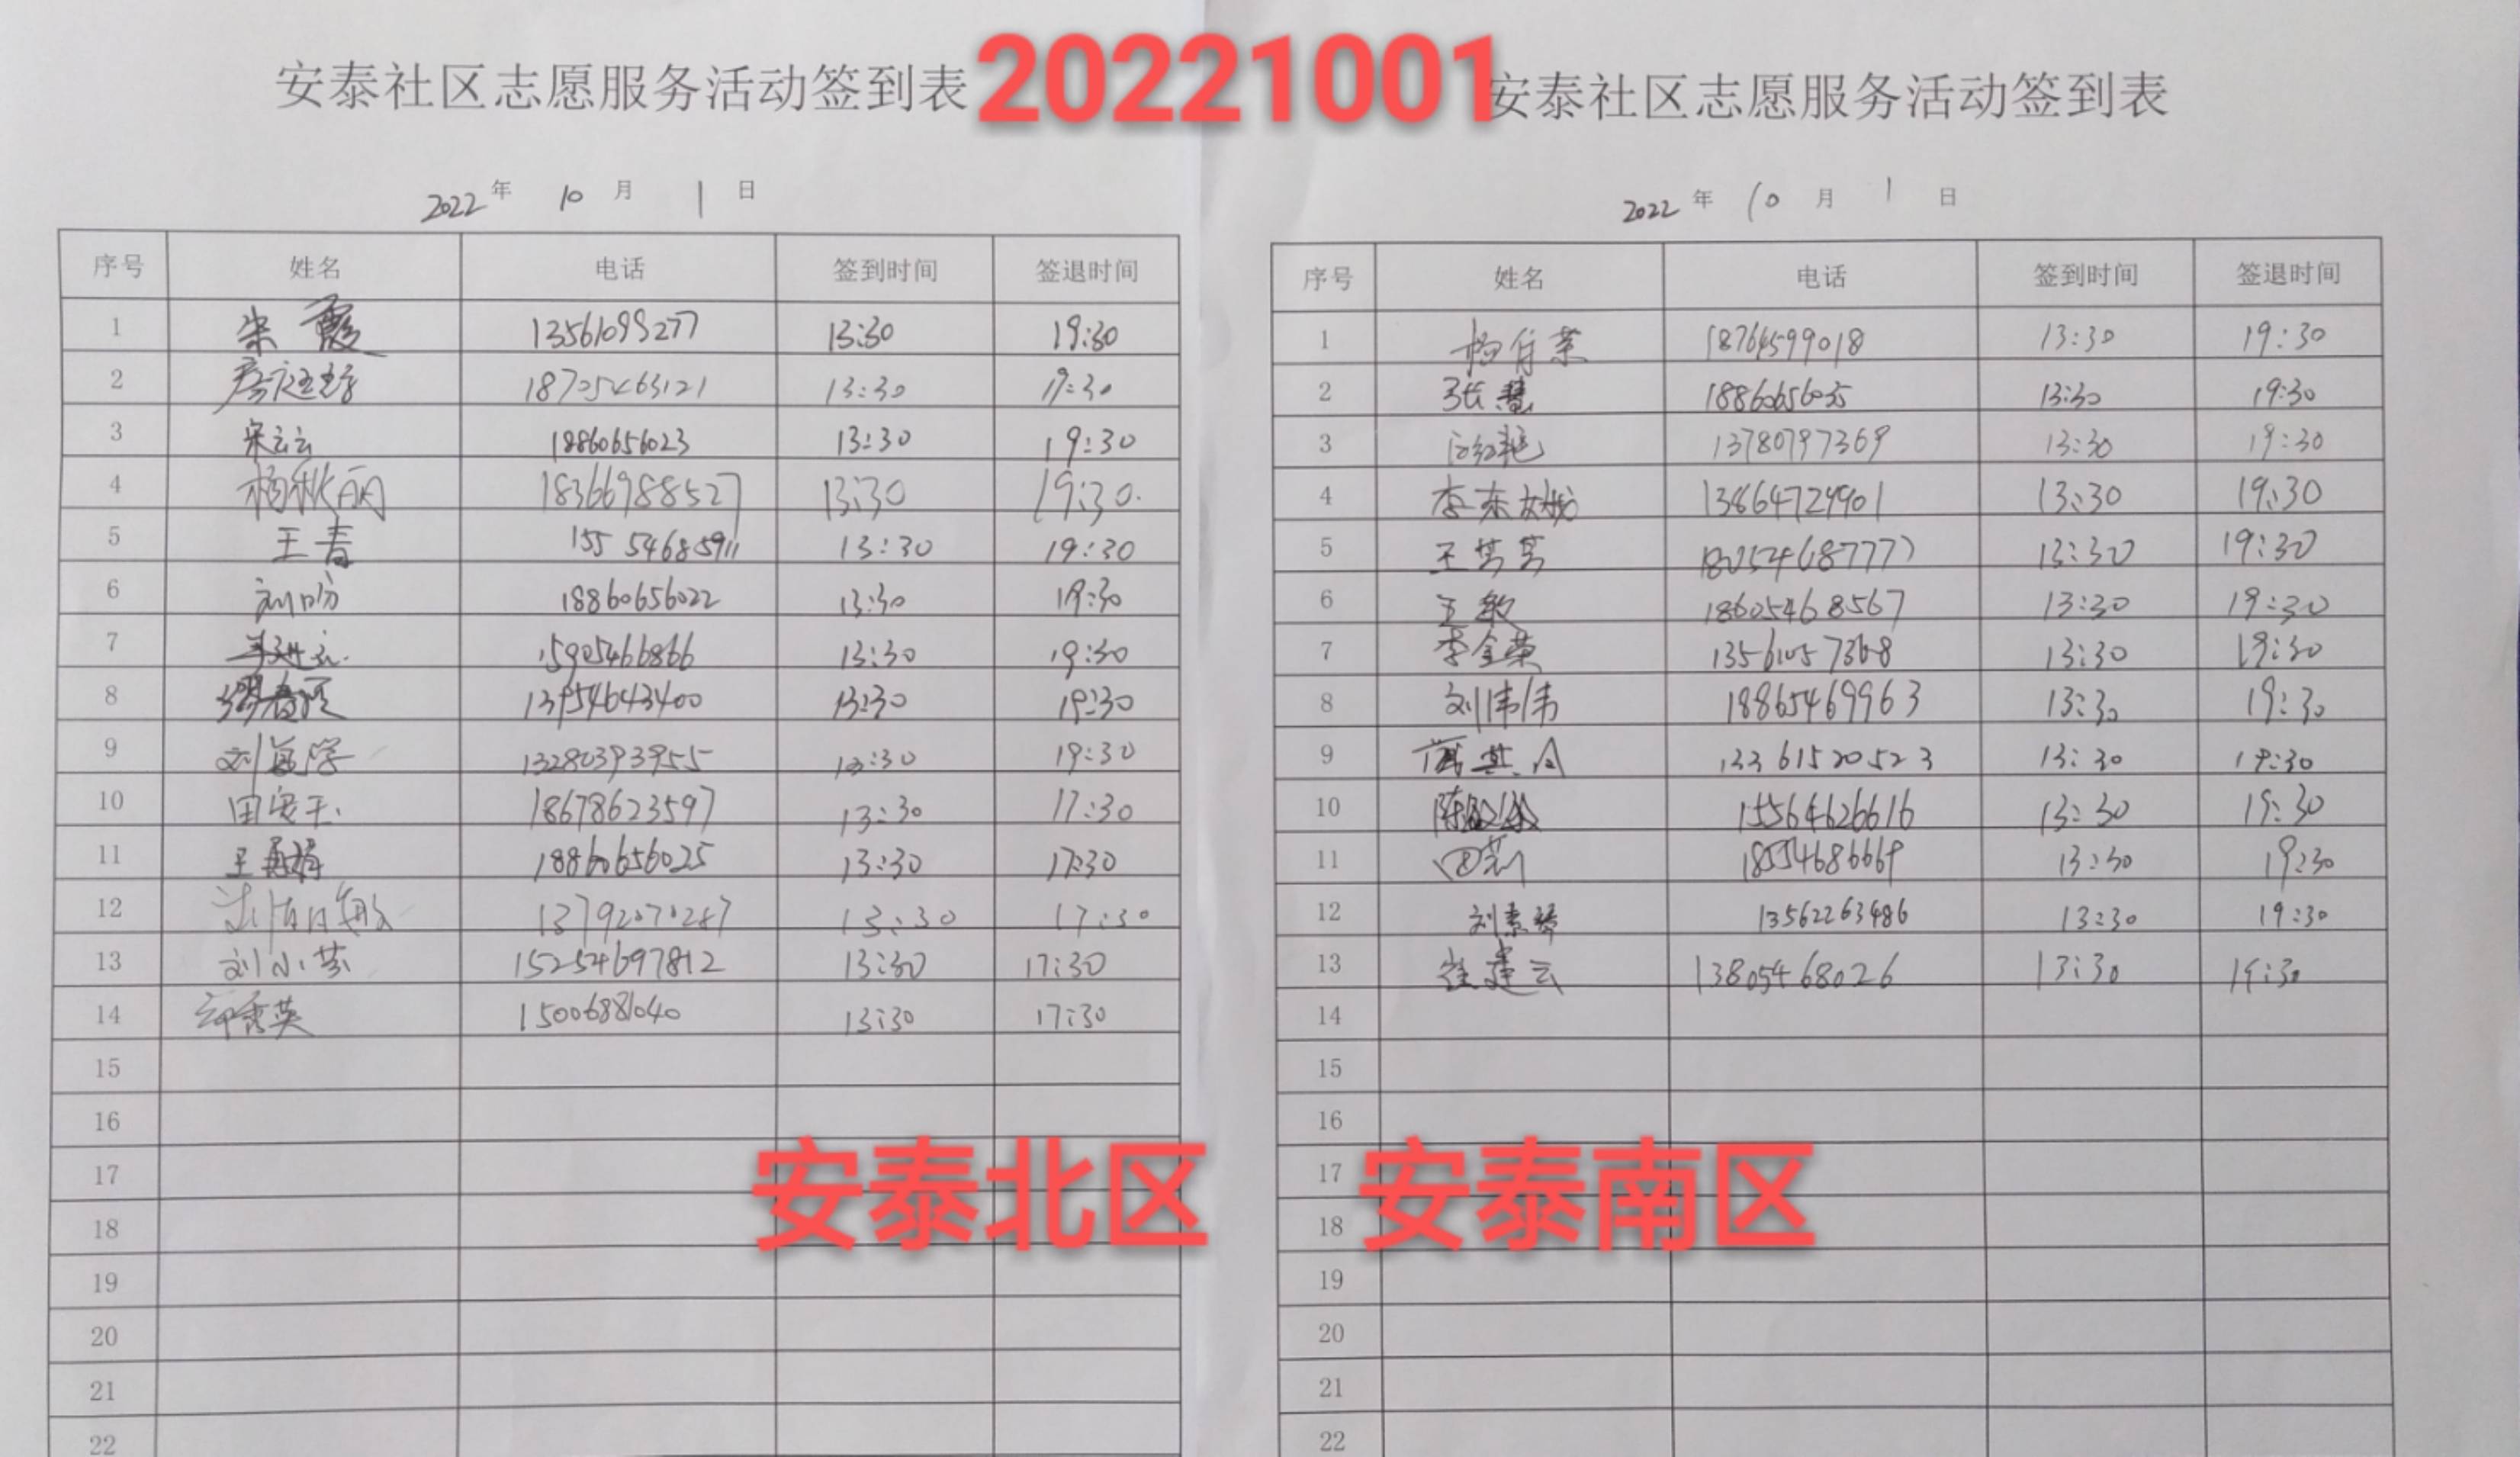 安泰社区志愿服务活动签到表
20221001
安泰社区志愿服务活动签到表
2022年 10月 1日
序号 姓名 电话 签到时间 签退时间
1 宋霞 13561099277 13:30 19:30
2 18705463121 13:30 19:30
3 宋云云 18860656023 13:30 19:30
4 杨秋丽 18366988527 13:30 19:30.
5 王春 155 54685911 13:30 19:30
6 刘盼 18860656022 13:30 19:30
7 15905466866 13:30 19:30
8 13954643400 13:30 19:30
9 13280393955 13:30 19:30
10 18678623597 13:30 17:30
11 18860656025 13:30 17:30
12 13792070287 13:30 17:30
13 刘小芬 15254697812 13:30 17:30
14 15006881040 13:30 17:30
15
16
17
18
19
20
21
22
安泰北区
2022年 10月 1日
序号 姓名 电话 签到时间 签退时间
1 18764599018 13:30 19:30
2 张慧 18860656035 13:30 19:30
3 13780797369 13:30 19:30
4 13864729901 13:30 19:30
5 王芳芳 13:30 19:30
6 王敏 18605468567 13:30 19:30
7 李金荣 13561057368 13:30 19:30
8 刘伟伟 18865469963 13:30 19:30
9 13361520523 13:30 19:30
10 15564626616 13:30 19:30
11 田莉 18554686669 13:30 19:30
12 刘素琴 13562263486 13:30 19:30
13 崔建云 13805468026 13:30 19:30
14
15
16
17
18
19
20
21
22
安泰南区